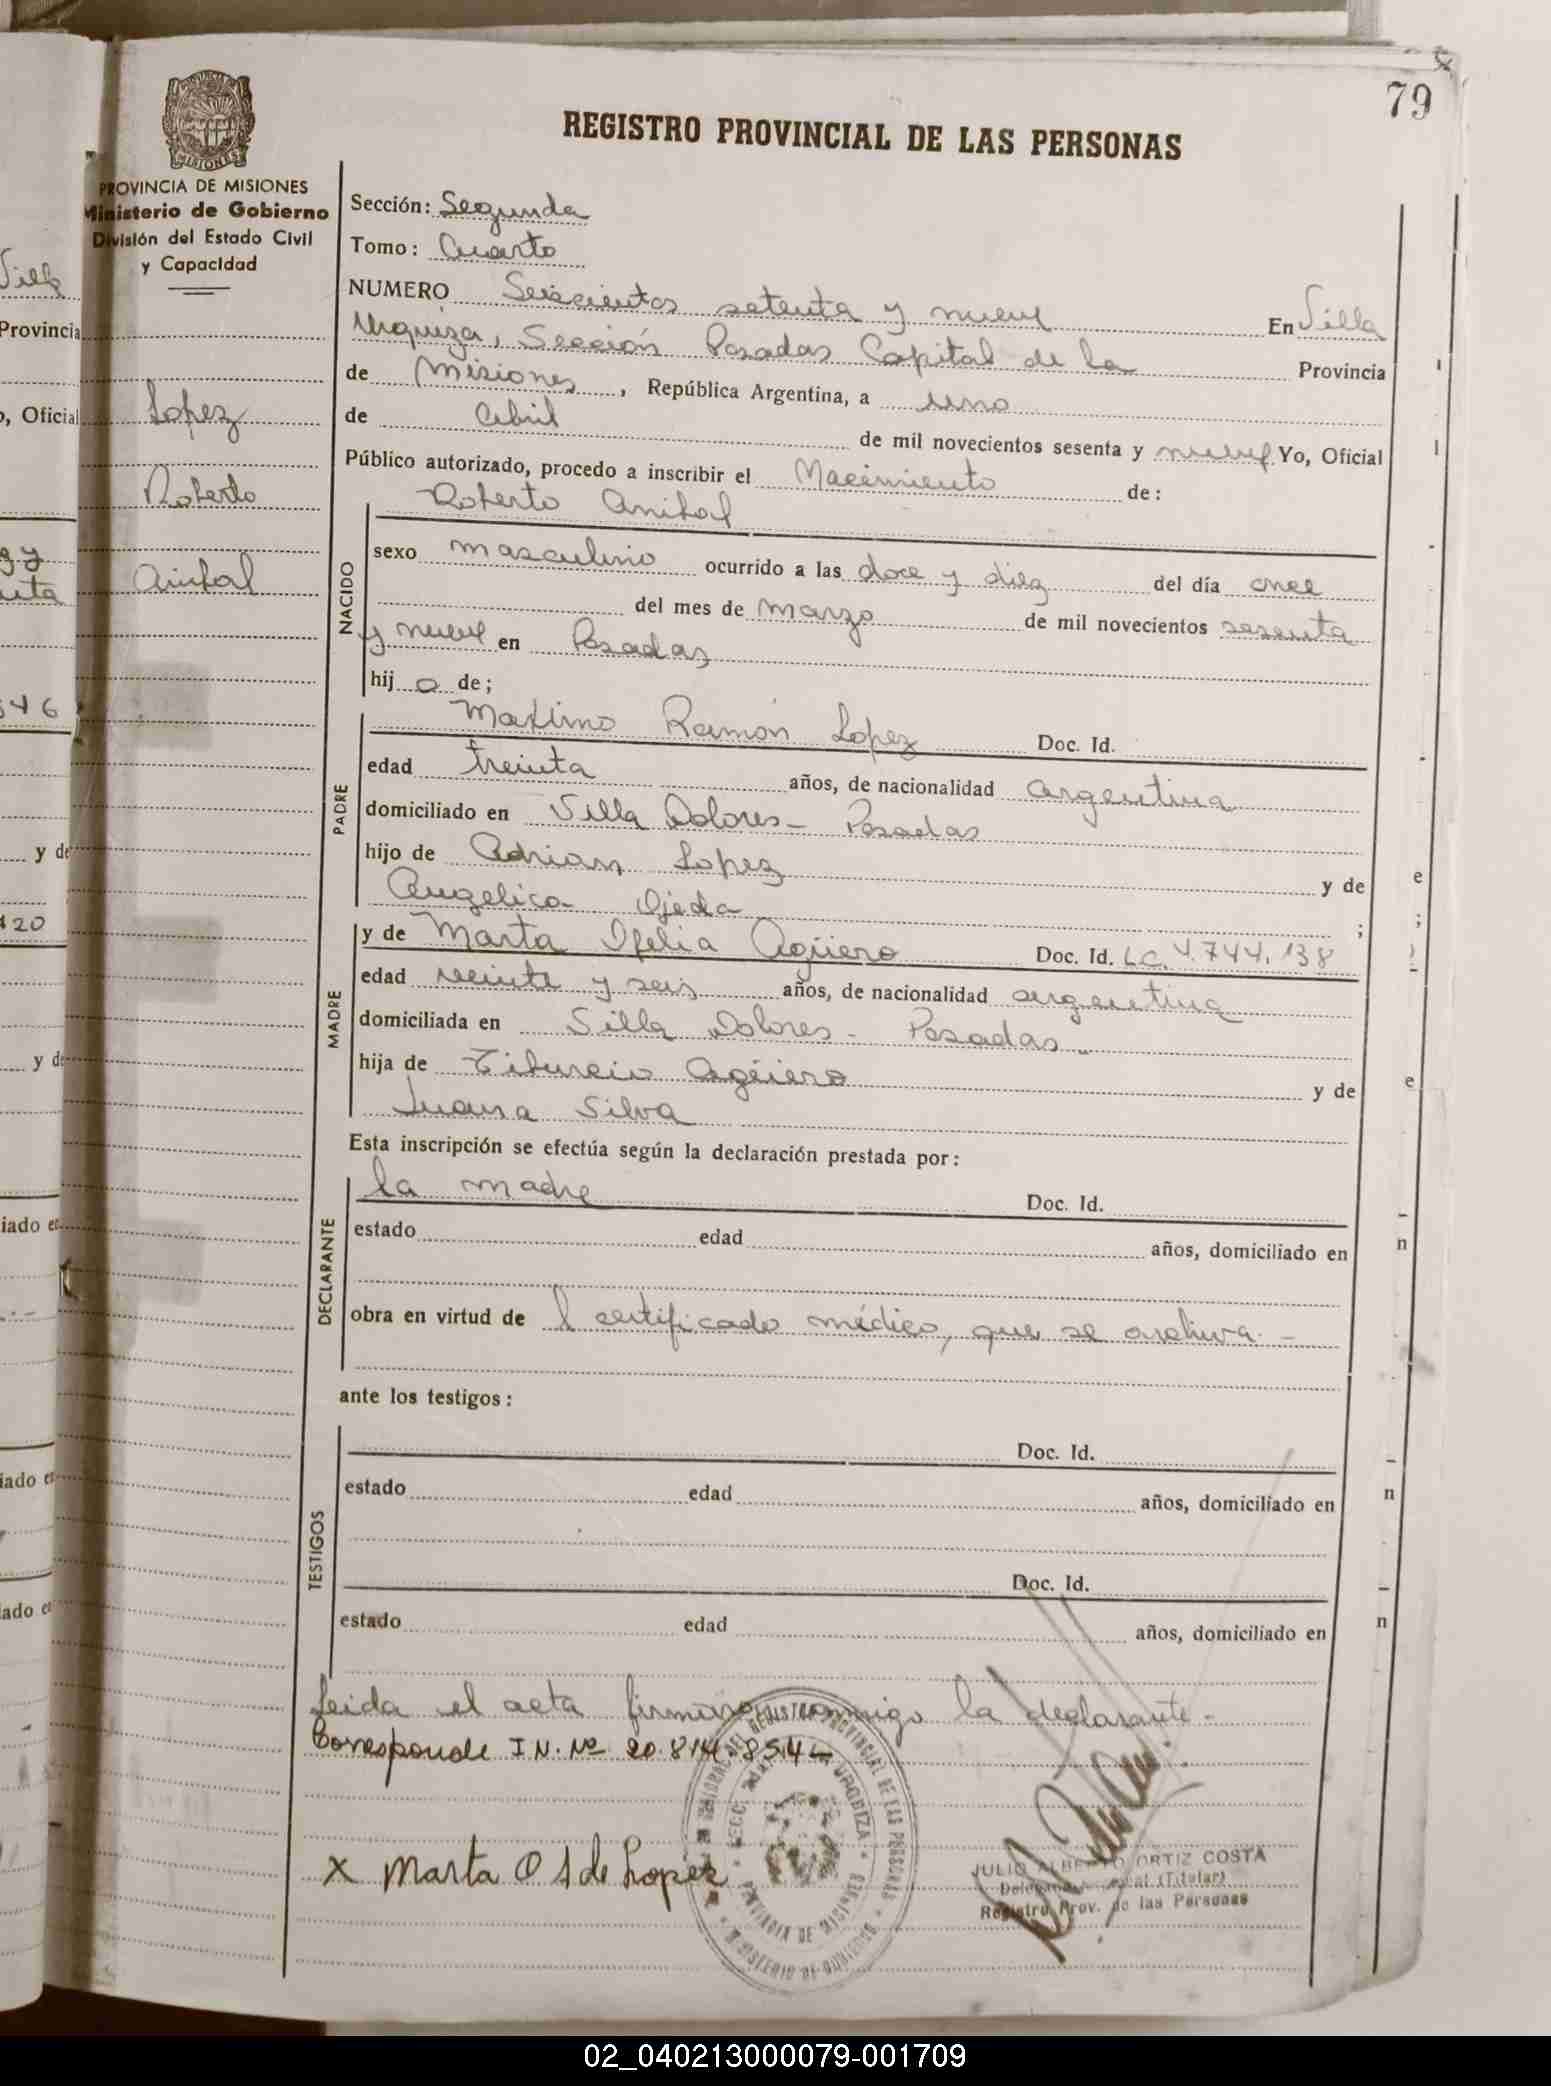 79
PROVINCIA DE MISIONES
Ministerio de Gobierno
División del Estado Civil
y Capacidad
REGISTRO PROVINCIAL DE LAS PERSONAS
Sección: Segunda
Tomo: Cuarto
NUMERO Seiscientos setenta y nueve En Villa
Urquiza, Sección Posadas Capital de la Provincia
de Misiones, República Argentina, a uno
de Abril de mil novecientos sesenta y nueve Yo, Oficial
Público autorizado, procedo a inscribir el Nacimiento de:
Lopez
Roberto
Anibal
NACIDO
Roberto Anibal
sexo masculino ocurrido a las doce y diez del día once
del mes de marzo de mil novecientos sesenta
y nueve en Posadas
hij o de;
PADRE
Maximo Ramón Lopez Doc. Id.
edad treinta años, de nacionalidad argentina
domiciliado en Villa Dolores - Posadas
hijo de Adrian Lopez y de
Angelica Ojeda ;
MADRE
y de Marta Ofelia Agüero Doc. Id. LC. 4.744.138
edad veinte y seis años, de nacionalidad argentina
domiciliada en Villa Dolores - Posadas -
hija de Tiburcio Agüero y de
Juana Silva
Esta inscripción se efectúa según la declaración prestada por:
DECLARANTE
la madre Doc. Id.
estado edad años, domiciliado en
obra en virtud de l certificado médico, que se archiva. -
ante los testigos:
TESTIGOS
Doc. Id.
estado edad años, domiciliado en
Doc. Id.
estado edad años, domiciliado en
Leida el acta firma conmigo la declarante. -
Corresponde I.N. Nº 20.814.854
x Marta O A de Lopez
JULIO ALBERTO ORTIZ COSTA
(Titular)
Registro Prov. de las Personas
02_040213000079-001709